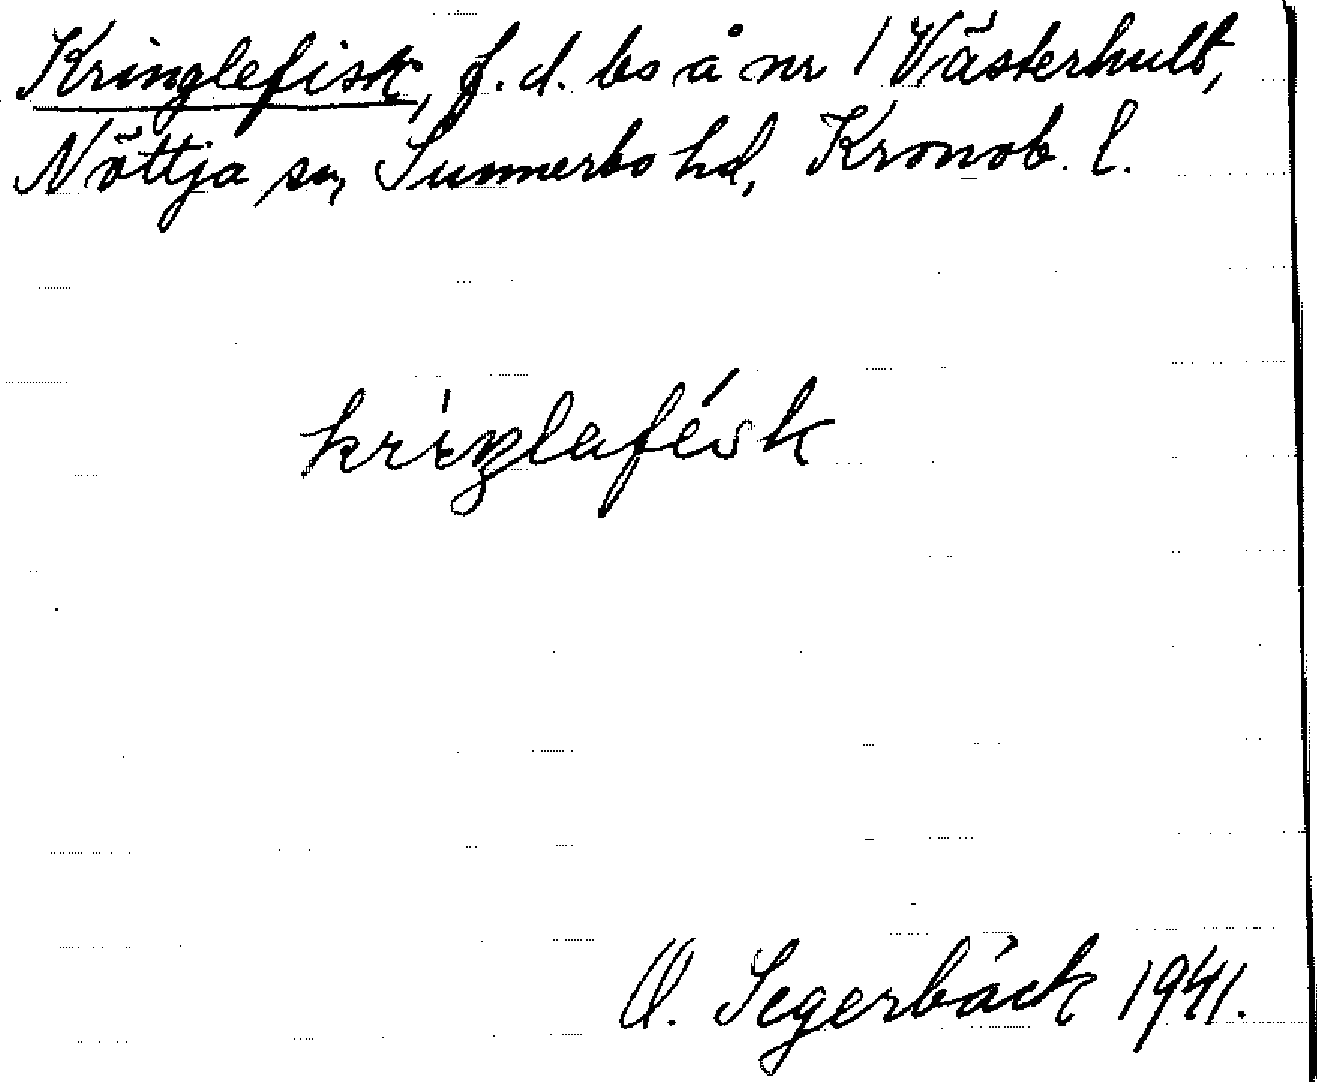 Kringlefisk, f.d. bs å nr 1 Västerhult,
Nöttja sn, Sunnerbo hd, Kronob. l.
kriŋlafésk
O. Segerbäck 1941.